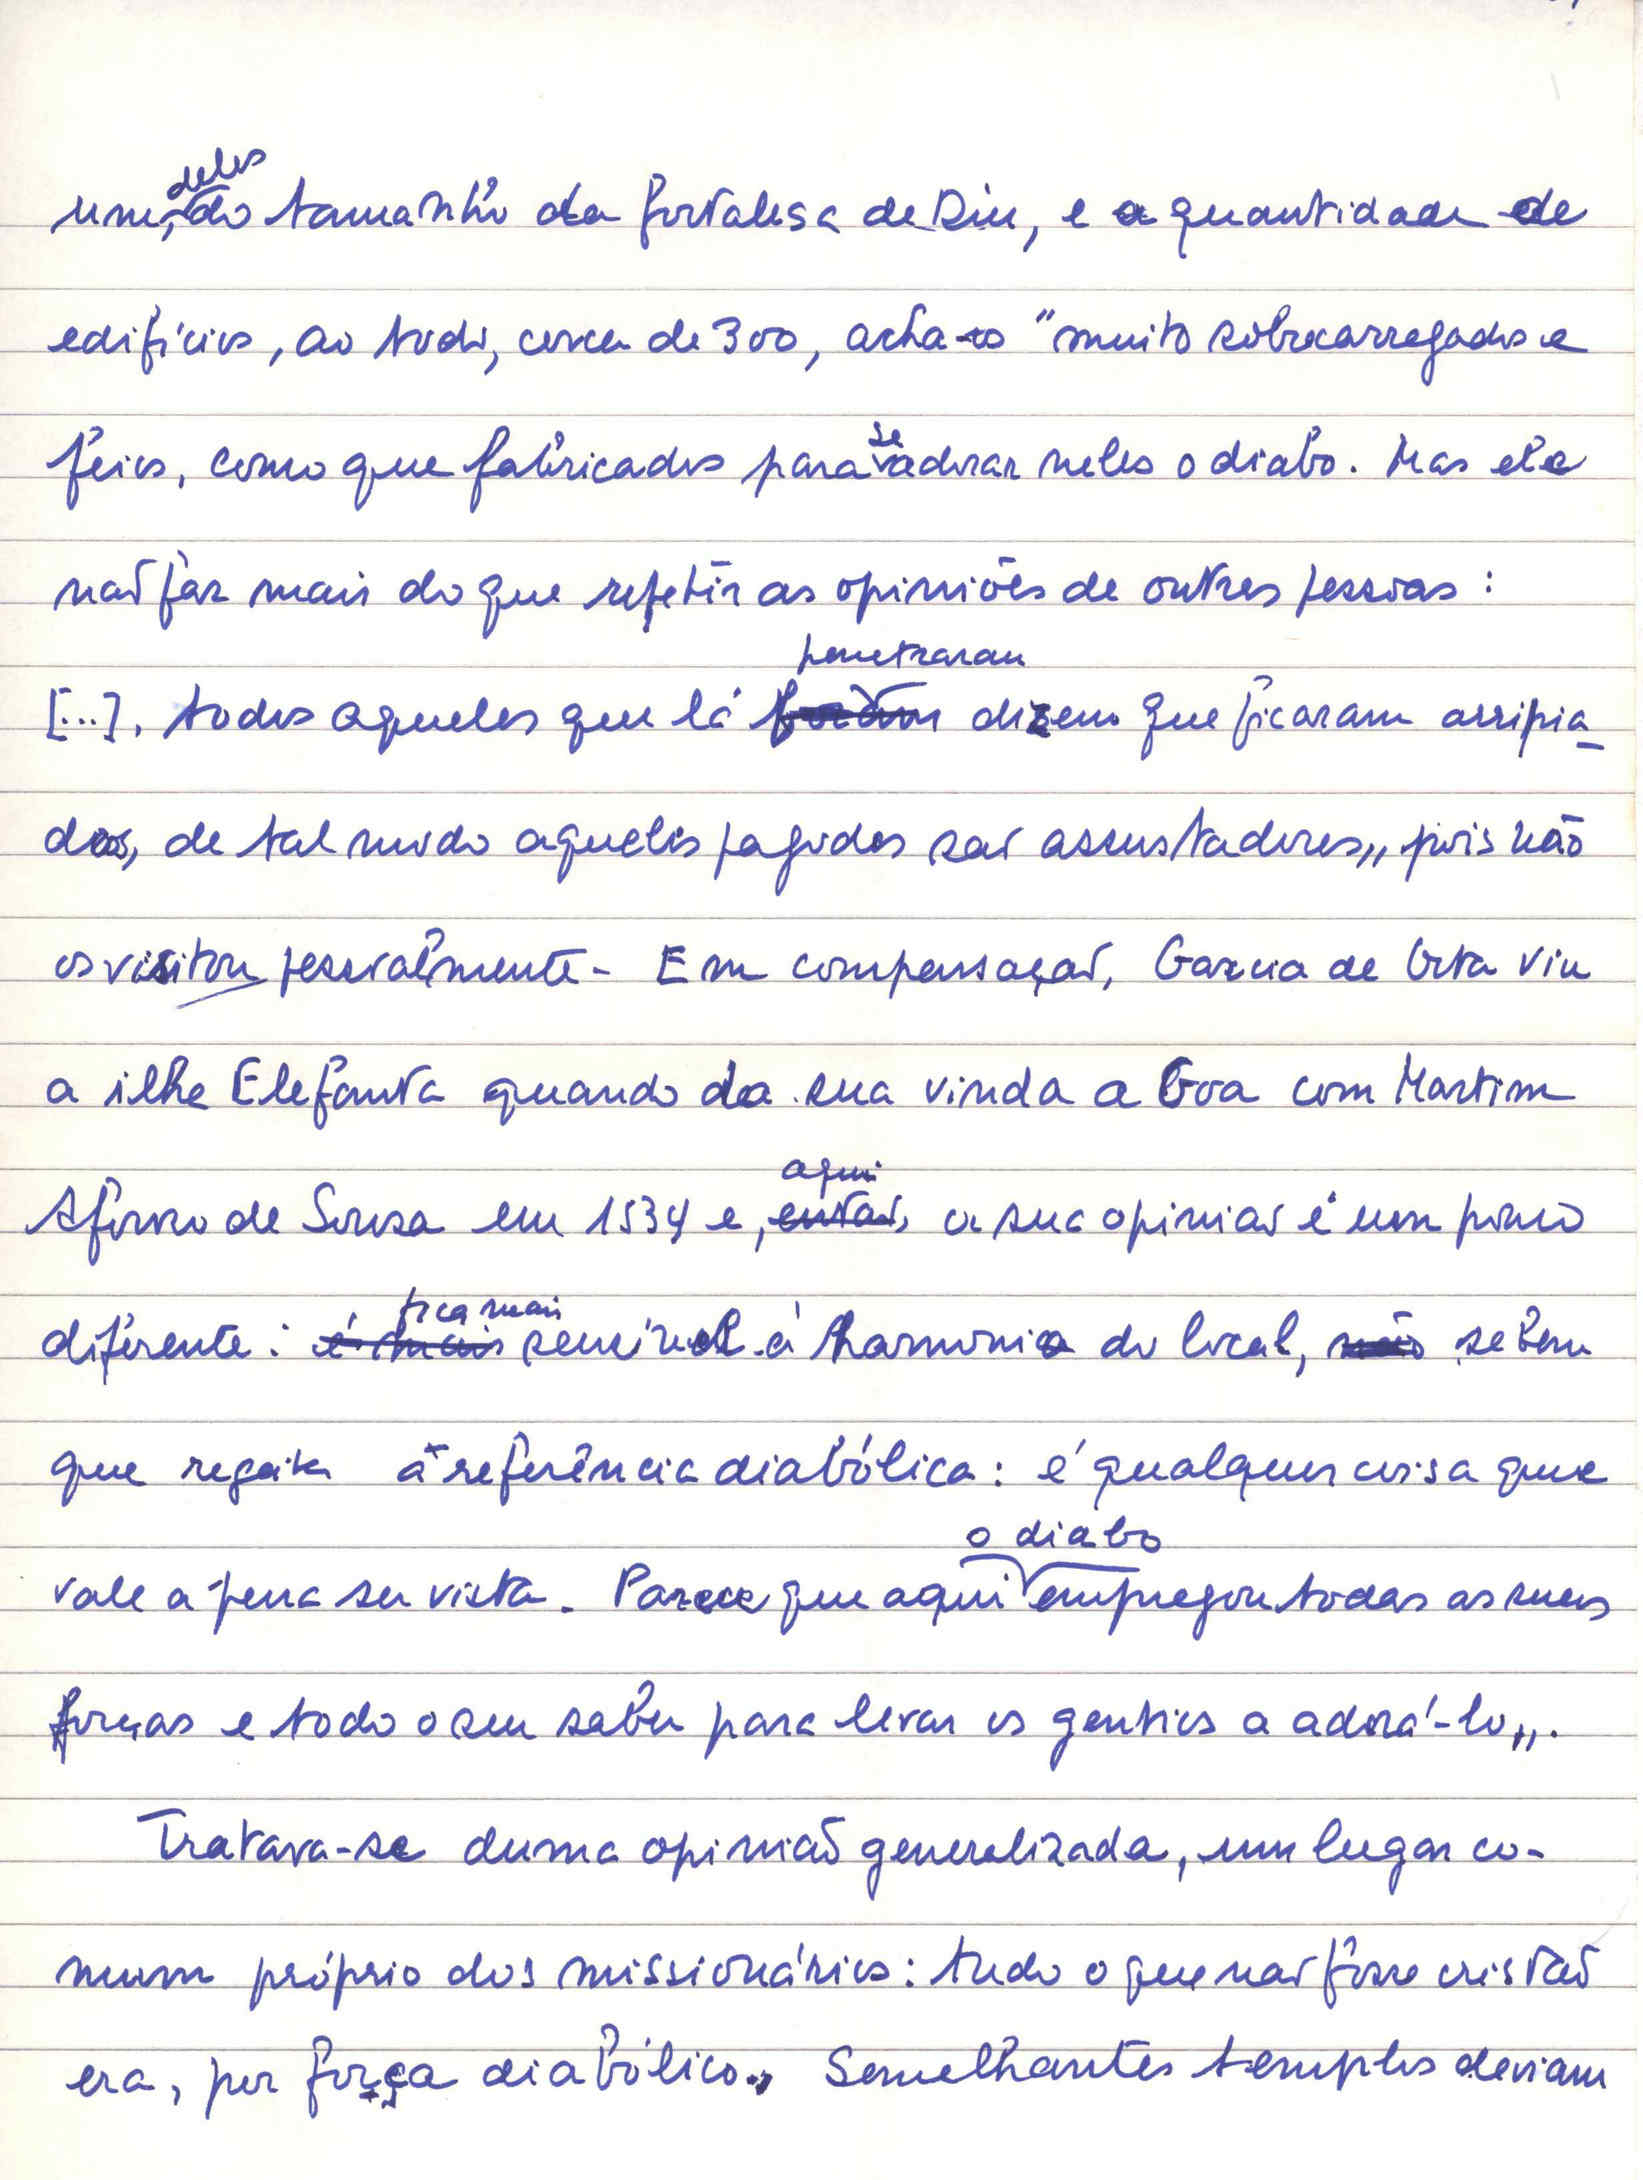 um, deles do tamanho da fortalesa de Diu, e a quantidade de
edifícios, ao todo, cerca de 300, acha-os "muito sobrecarregados e
feios, como que fabricados para se adorar neles o diabo. Mas ele
não faz mais do que repetir as opiniões de outras pessoas:
penetraram
[...], todos aqueles que lá foram dizem que ficaram arripia-
dos, de tal modo aqueles pagodes são assustadores,, pois não
os visitou pessoalmente - Em compensação, Garcia de Orta viu
a ilha Elefanta quando da sua vinda a Goa com Martim
aqui
Afonso de Sousa em 1534 e, então, a sua opinião é um pouco
fica mais
diferente: é mais sensível à harmonia do local, não se bem
que à referência diabólica: é qualquer coisa que
o diabo
vale a pena ser vista. Parece que aqui empregou todas as suas
forças e todo o seu saber para levar os gentios a adorá-lo,,.
Tratava-se duma opinião generalizada, um lugar co-
mum próprio dos missionários: tudo o que não fosse cristão
era, por força diabólico., Semelhantes templos deviam